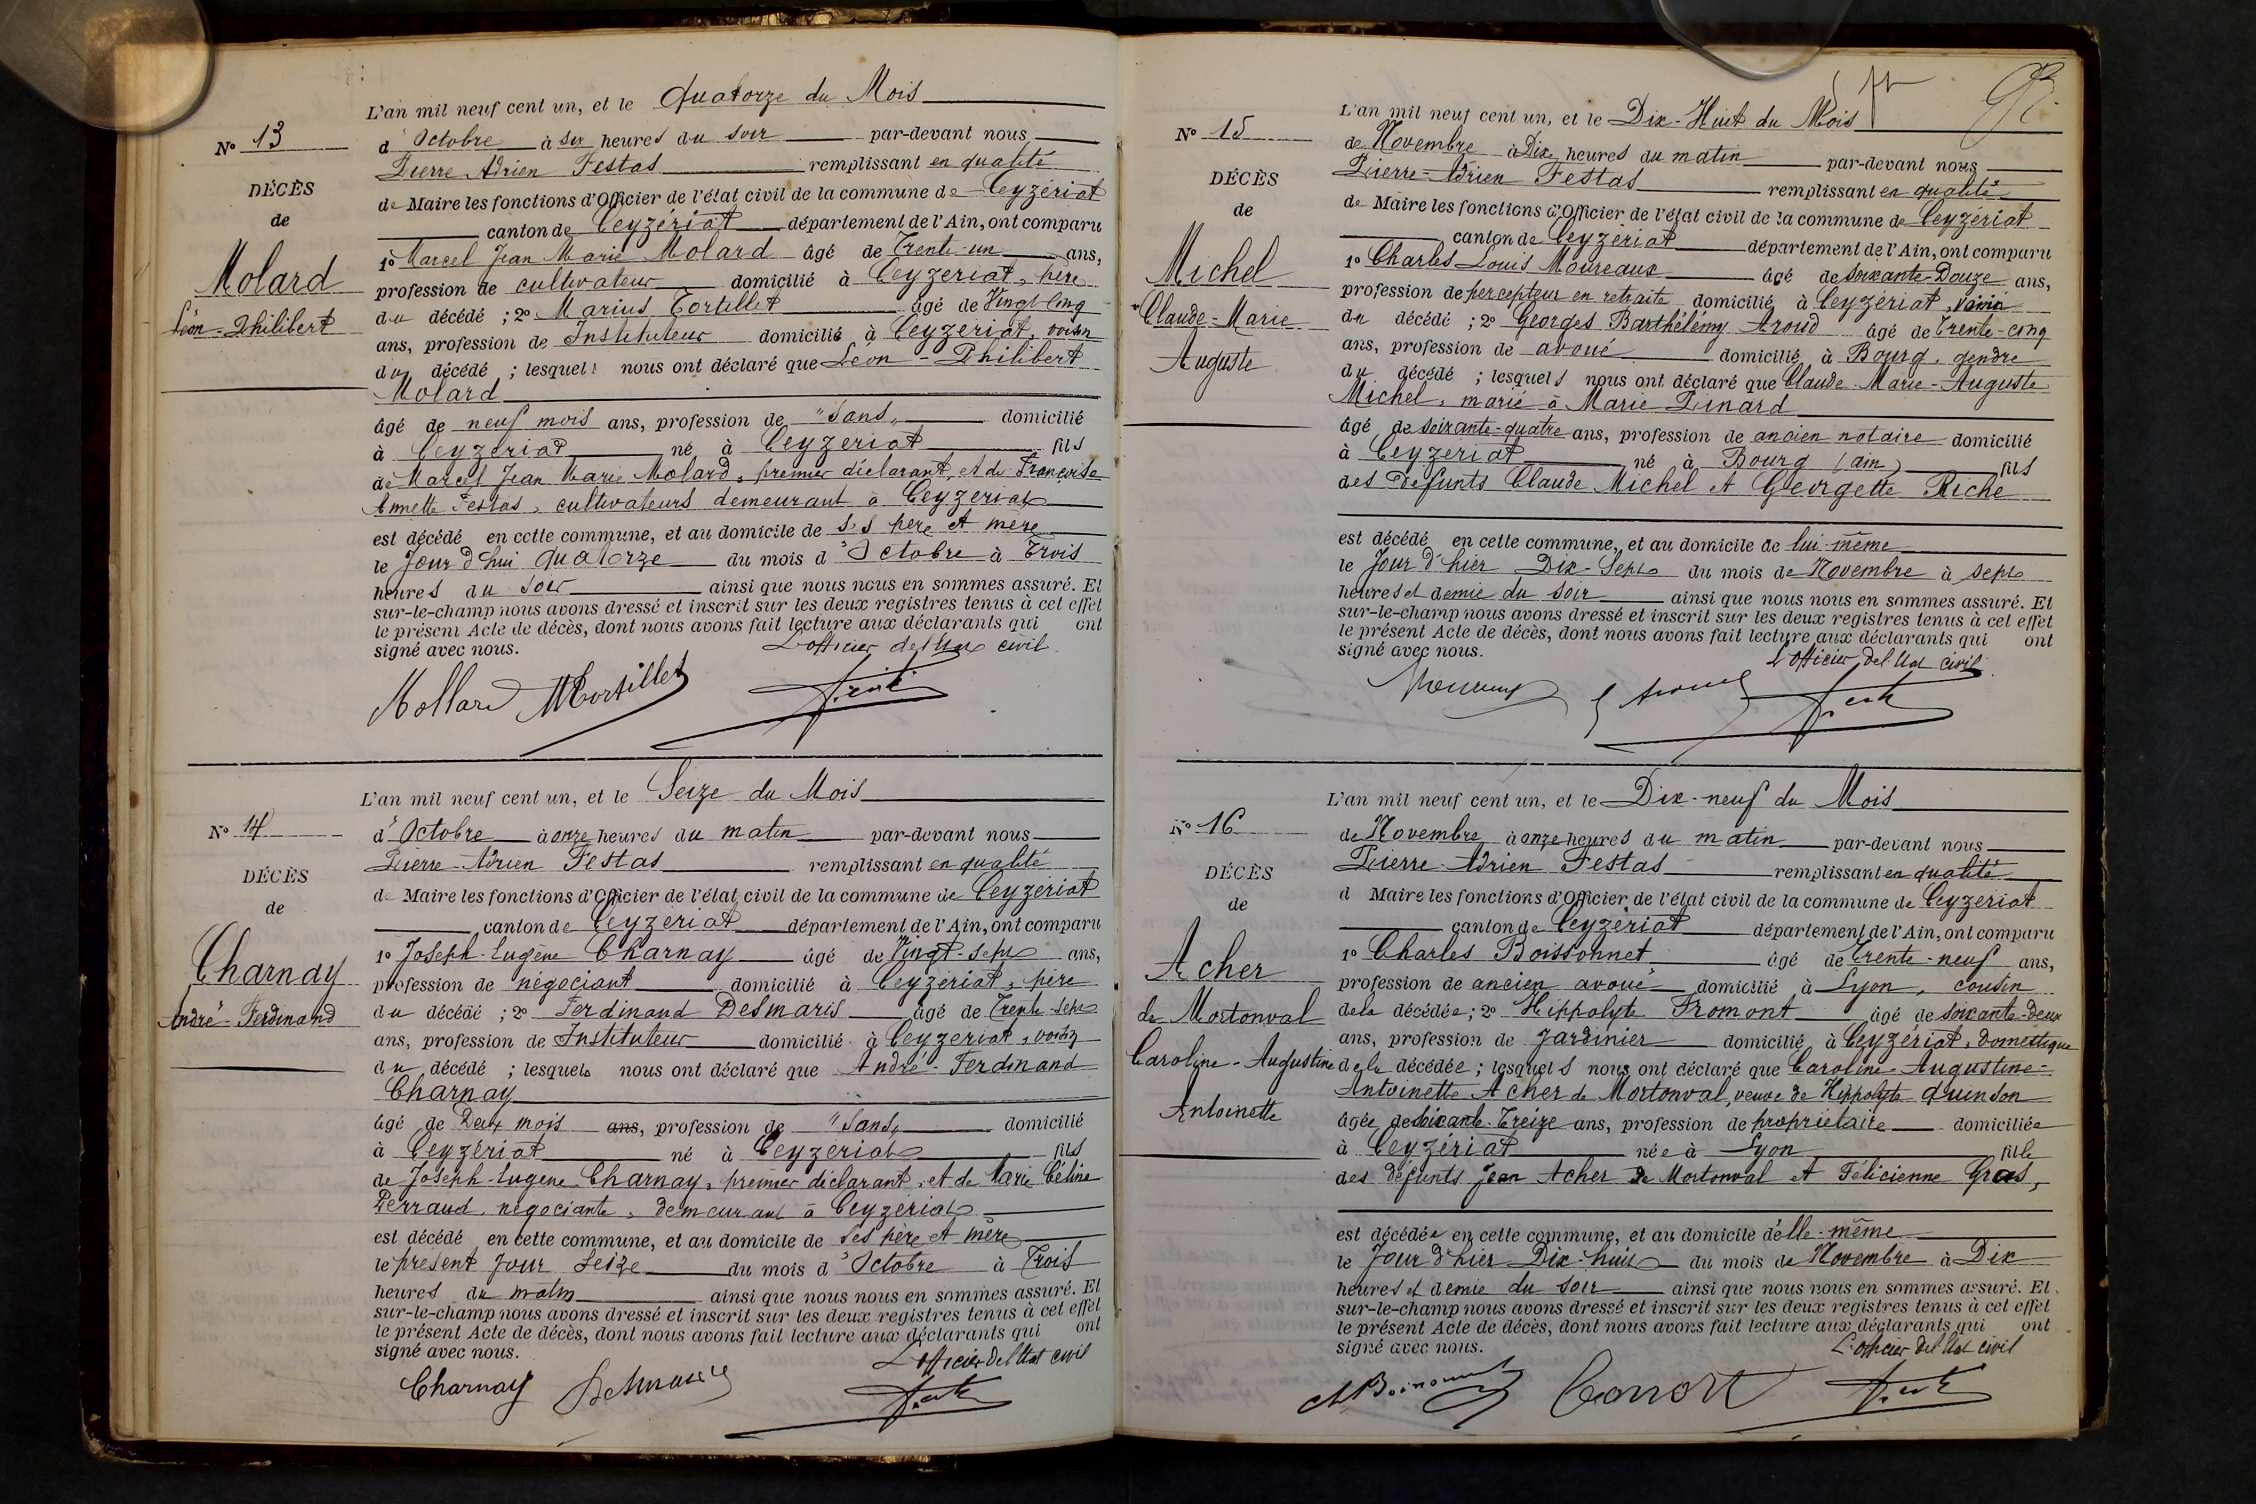 N° 13
DÉCÈS
de
Molard
Léon-Philibert
L'an mil neuf cent un, et le Quatorze du Mois
d'Octobre à six heures du soir par-devant nous
Pierre Adrien Festas remplissant en qualité
de Maire les fonctions d'Officier de l'état civil de la commune de Ceyzériat
canton de Ceyzériat département de l'Ain, ont comparu
1° Marcel Jean Marie Molard âgé de Trente-un ans,
profession de cultivateur domicilié à Ceyzériat, père
du décédé ; 2° Marius Tortillet âgé de Vingt-cinq
ans, profession de Instituteur domicilié à Ceyzériat, voisin
du décédé ; lesquels nous ont déclaré que Léon-Philibert
Molard
âgé de neuf mois ans, profession de "sans" domicilié
à Ceyzériat né à Ceyzériat fils
de Marcel Jean Marie Molard, premier déclarant, et de Françoise
Annette Festas, cultivateurs demeurant à Ceyzériat
est décédé en cette commune, et au domicile de ses père et mère
le Jour d'hui quatorze du mois d'Octobre à Trois
heures du soir ainsi que nous nous en sommes assuré. Et
sur-le-champ nous avons dressé et inscrit sur les deux registres tenus à cet effet
le présent Acte de décès, dont nous avons fait lecture aux déclarants qui ont
signé avec nous. L'officier de l'état civil
Mollard MTortillet
N° 14
DÉCÈS
de
Charnay
André-Ferdinand
L'an mil neuf cent un, et le Seize du Mois
d'Octobre à onze heures du matin par-devant nous
Pierre-Adrien Festas remplissant en qualité
de Maire les fonctions d'Officier de l'état civil de la commune de Ceyzériat
canton de Ceyzériat département de l'Ain, ont comparu
1° Joseph-Eugène Charnay âgé de Vingt-sept ans,
profession de négociant domicilié à Ceyzériat, père
du décédé ; 2° Ferdinand Desmaris âgé de Trente-sept
ans, profession de Instituteur domicilié à Ceyzériat, voisin
du décédé ; lesquels nous ont déclaré que André-Ferdinand
Charnay
âgé de Deux mois ans, profession de "Sans" domicilié
à Ceyzériat né à Ceyzériat fils
de Joseph-Eugène Charnay, premier déclarant, et de Marie Céline
Perraud, négociante, demeurant à Ceyzériat
est décédé en cette commune, et au domicile de ses père et mère
le présent jour Seize du mois d'Octobre à Trois
heures du matin ainsi que nous nous en sommes assuré. Et
sur-le-champ nous avons dressé et inscrit sur les deux registres tenus à cet effet
le présent Acte de décès, dont nous avons fait lecture aux déclarants qui ont
signé avec nous. L'officier de l'état civil
Charnay Desmaris
N° 15
DÉCÈS
de
Michel
Claude-Marie
Auguste
L'an mil neuf cent un, et le Dix-Huit du Mois
de Novembre à Dix heures du matin par-devant nous
Pierre-Adrien Festas remplissant en qualité
de Maire les fonctions d'Officier de l'état civil de la commune de Ceyzériat
canton de Ceyzériat département de l'Ain, ont comparu
1° Charles Louis Moureaux âgé de soixante-Douze ans,
profession de percepteur en retraite domicilié à Ceyzériat, voisin
du décédé ; 2° Georges Barthélémy Aroud âgé de Trente-cinq
ans, profession de avoué domicilié à Bourg, gendre
du décédé ; lesquels nous ont déclaré que Claude-Marie-Auguste
Michel, marié à Marie Pinard
âgé de soixante-quatre ans, profession de ancien notaire domicilié
à Ceyzériat né à Bourg (ain) fils
des defunts Claude Michel et Georgette Riche
est décédé en cette commune, et au domicile de lui-même
le Jour d'hier Dix-Sept du mois de Novembre à sept
heures et demie du soir ainsi que nous nous en sommes assuré. Et
sur-le-champ nous avons dressé et inscrit sur les deux registres tenus à cet effet
le présent Acte de décès, dont nous avons fait lecture aux déclarants qui ont
signé avec nous. L'officier de l'état civil
N° 16
DÉCÈS
de
Acher
de Mortonval
Caroline-Augustine
Antoinette
L'an mil neuf cent un, et le Dix-neuf du Mois
de Novembre à onze heures du matin par-devant nous
Pierre-Adrien Festas remplissant en qualité
d Maire les fonctions d'Officier de l'état civil de la commune de Ceyzériat
canton de Ceyzériat département de l'Ain, ont comparu
1° Charles Boissonnet âgé de Trente-neuf ans,
profession de ancien avoué domicilié à Lyon, cousin
de la décédée ; 2° Hippolyte Fromont âgé de soixante-deux
ans, profession de Jardinier domicilié à Ceyzériat, domestique
de la décédée ; lesquels nous ont déclaré que Caroline-Augustine-
Antoinette Acher de Mortonval, veuve de Hippolyte Quinson
âgée de soixante-Treize ans, profession de propriétaire domiciliée
à Ceyzériat née à Lyon fille
des défunts Jean Acher de Mortonval et Félicienne Gras,
est décédée en cette commune, et au domicile d'elle-même
le Jour d'hier Dix-huit du mois de Novembre à Dix
heures et demie du soir ainsi que nous nous en sommes assuré. Et
sur-le-champ nous avons dressé et inscrit sur les deux registres tenus à cet effet
le présent Acte de décès, dont nous avons fait lecture aux déclarants qui ont
signé avec nous. L'officier de l'état civil